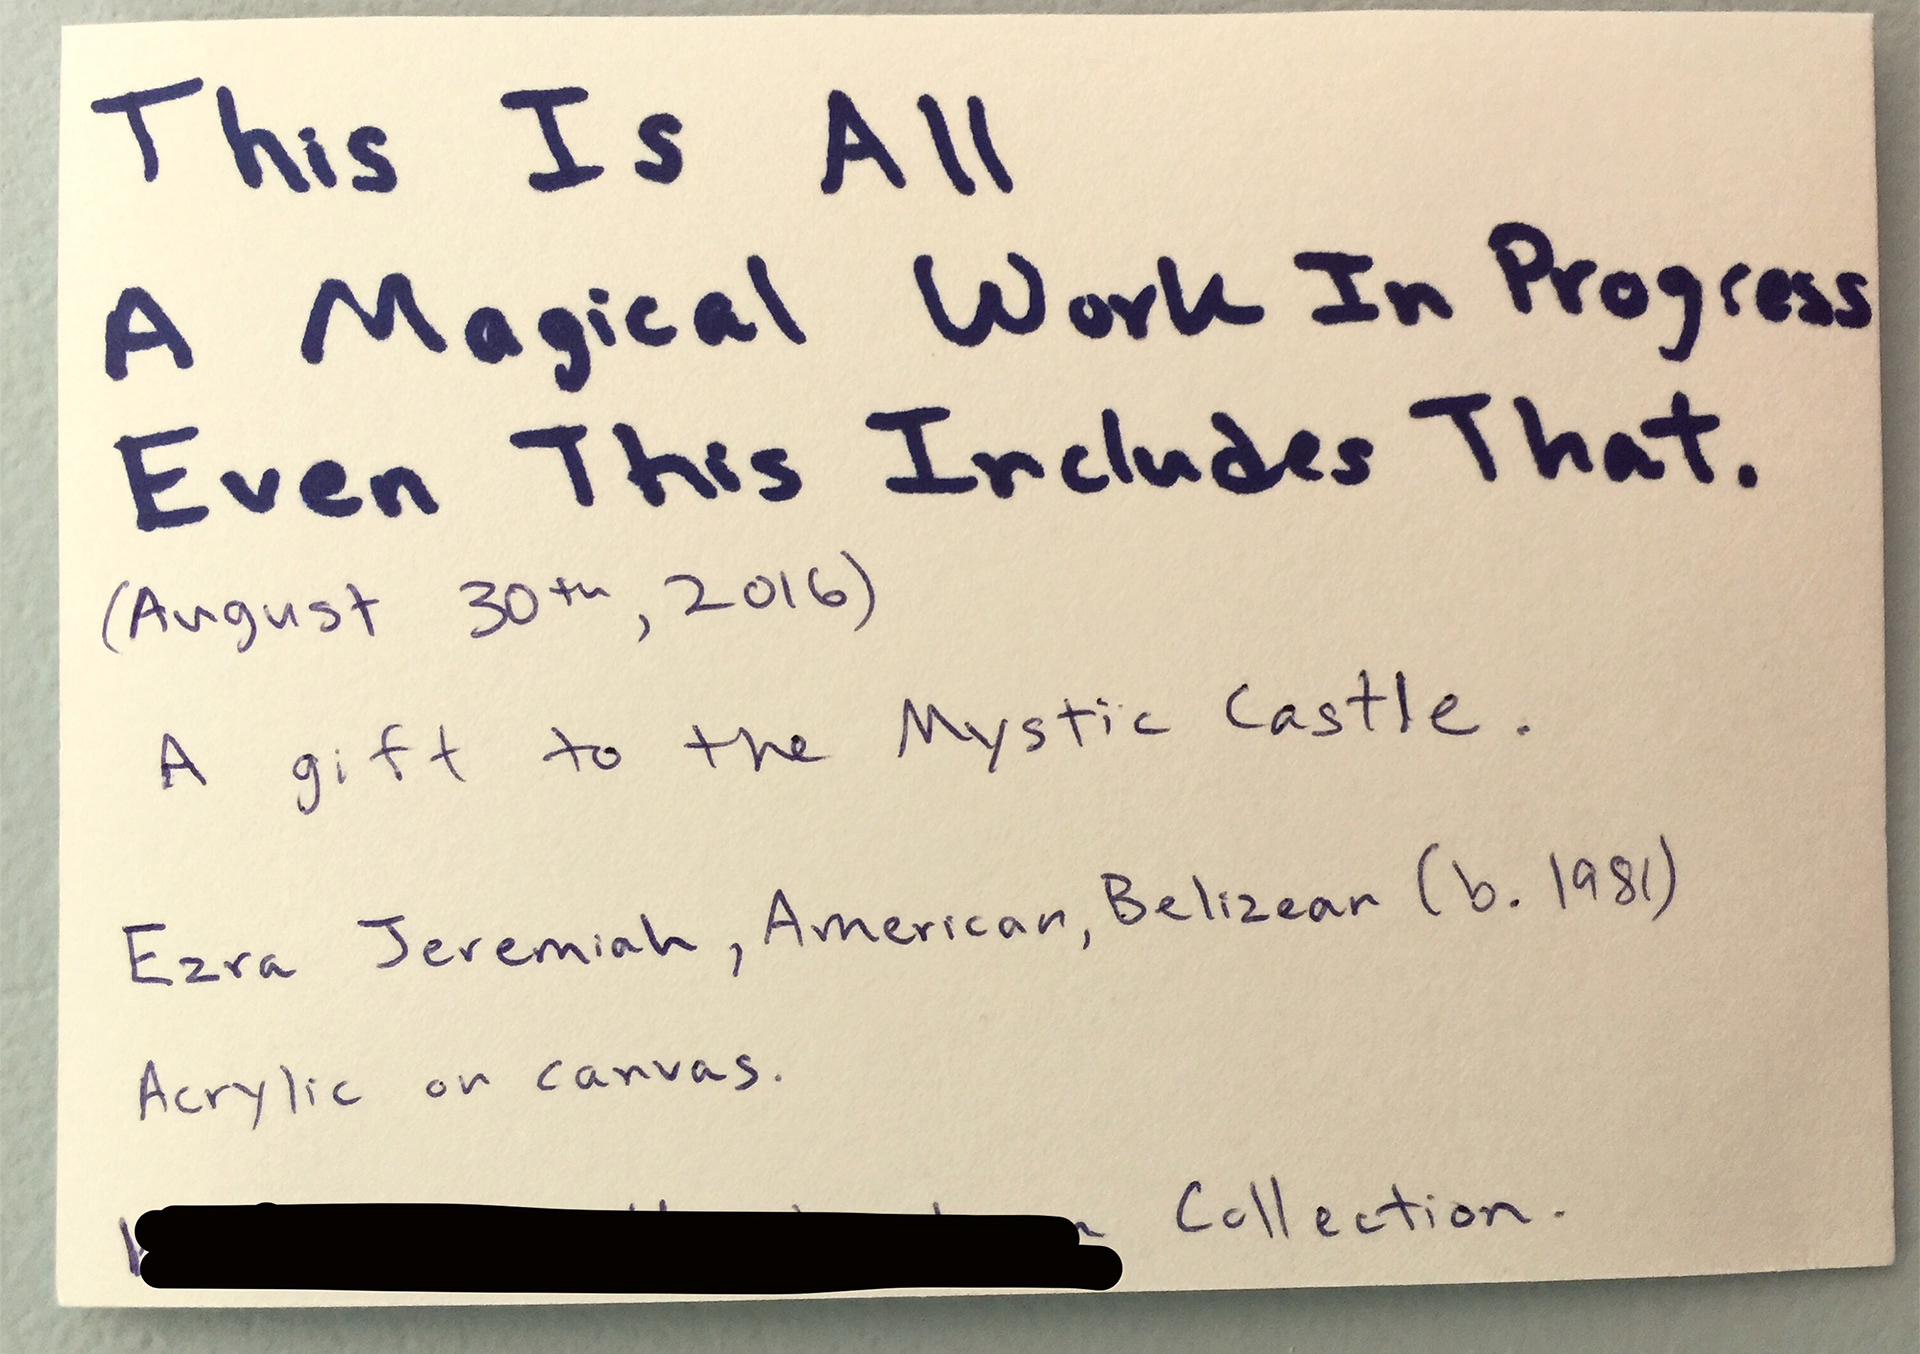 This Is All
A Magical Work In Progress
Even This Includes That.
(August 30th, 2016)
A gift to the Mystic Castle.
Ezra Jeremiah, American, Belizean (b. 1981)
Acrylic on canvas.
Collection.